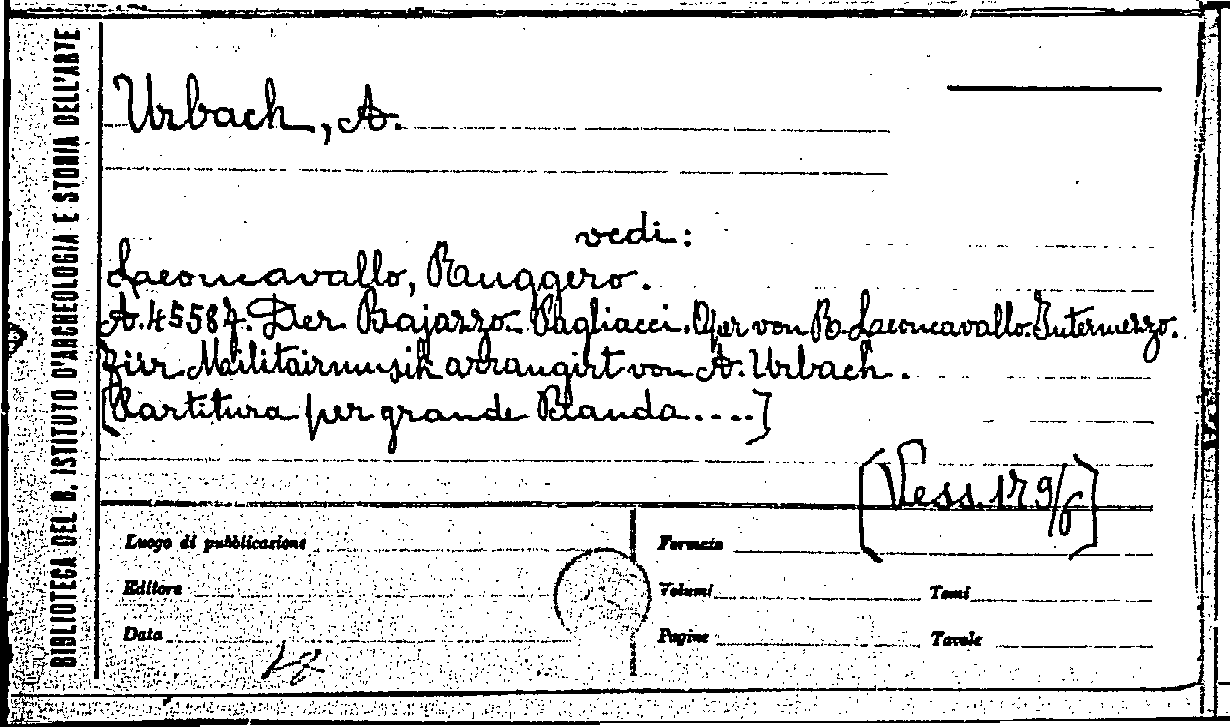 BIBLIOTECA DEL R. ISTITUTO D'ARCHEOLOGIA E STORIA DELL'ARTE
Urbach, A.
vedi:
Leoncavallo, Ruggero.
A.45587. Der Bajazzo. Pagliacci. Oper von R. Leoncavallo. Intermezzo.
für Militairmusik arrangirt von A. Urbach.
[Partitura per grande Banda....]
[Vess. 179/6]
Luogo di pubblicazione
Formato
Editore
Volumi
Tomi
Data
Pagine
Tavole